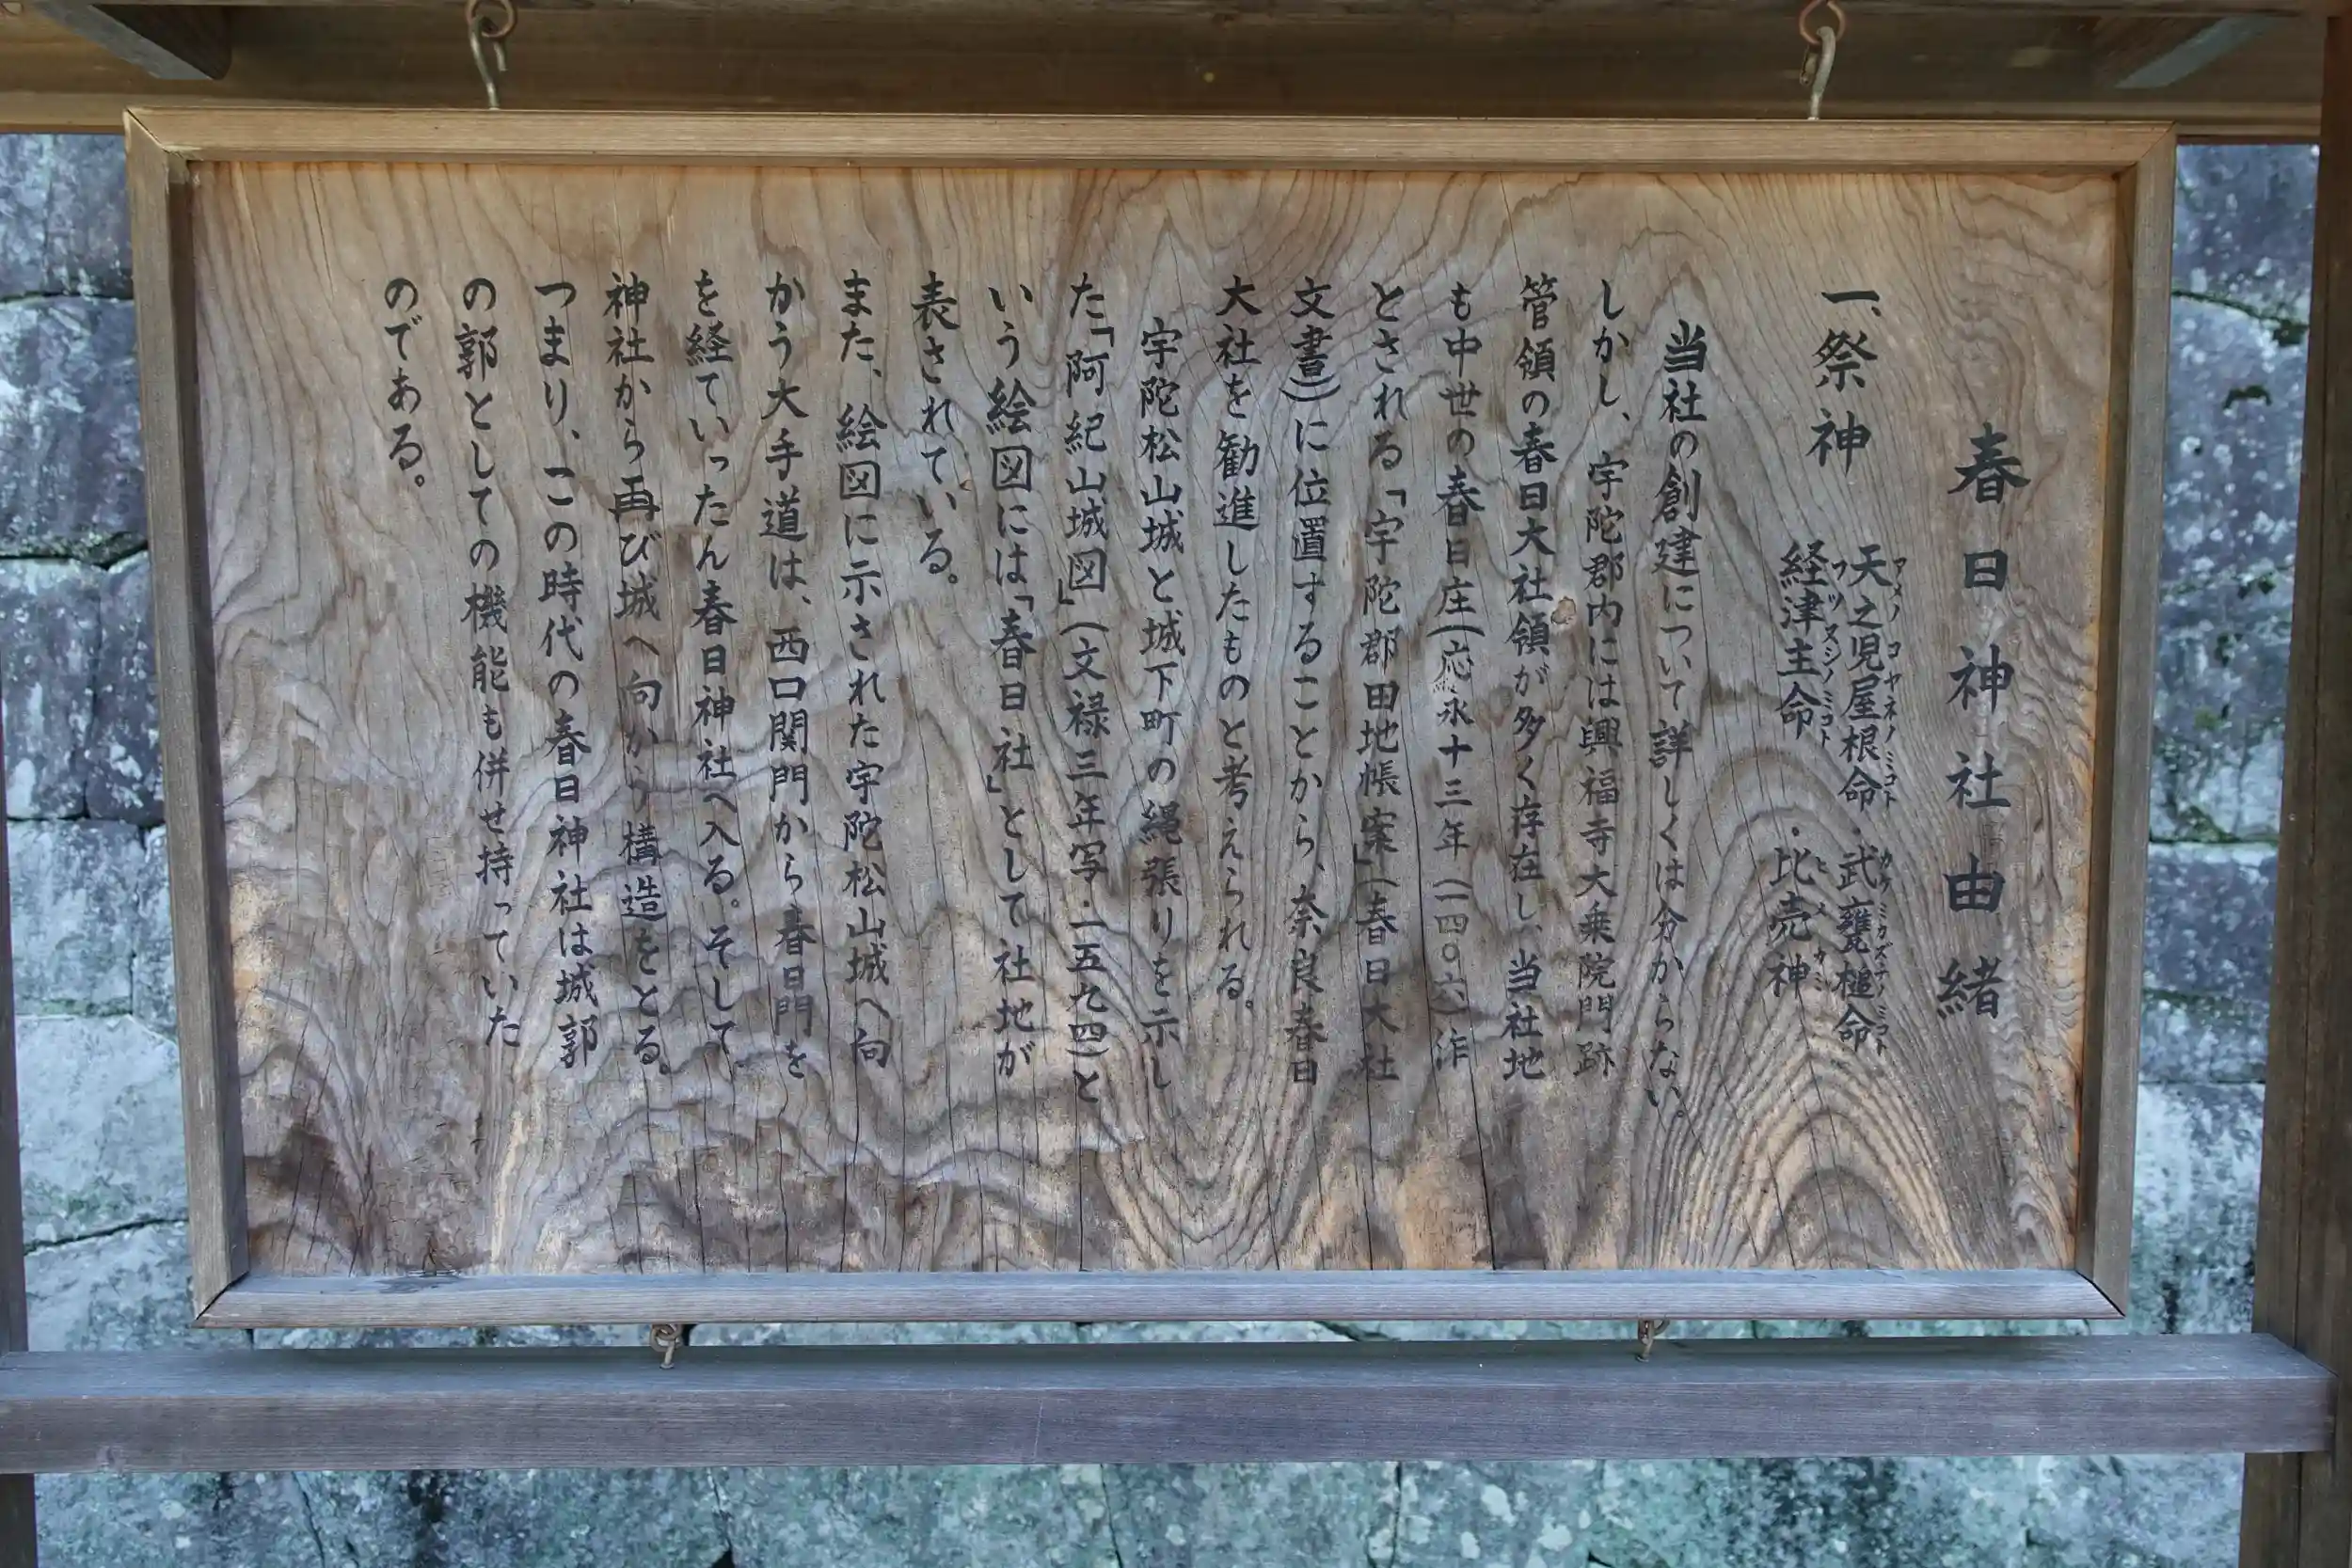 春日神社由緒
一、祭神 天之児屋根命・武甕槌命
アメノコヤネノミコト タケミカズチノミコト
経津主命・比売神
フツヌシノミコト ヒメカミ
当社の創建について詳しくは分からない。
しかし、宇陀郡内には興福寺大乗院門跡
管領の春日大社領が多く存在し、当社地
も中世の春日庄(応永十三年(一四〇六)作
とされる「宇陀郡田地帳案」(春日大社
文書))に位置することから、奈良春日
大社を勧進したものと考えられる。
宇陀松山城と城下町の縄張りを示し
た「阿紀山城図」(文禄三年写・一五九四)と
いう絵図には「春日社」として社地が
表されている。
また、絵図に示された宇陀松山城へ向
かう大手道は、西口関門から春日門を
を経ていったん春日神社へ入る。そして
神社から再び城へ向かう構造をとる。
つまり、この時代の春日神社は城郭
の郭としての機能も併せ持っていた
のである。